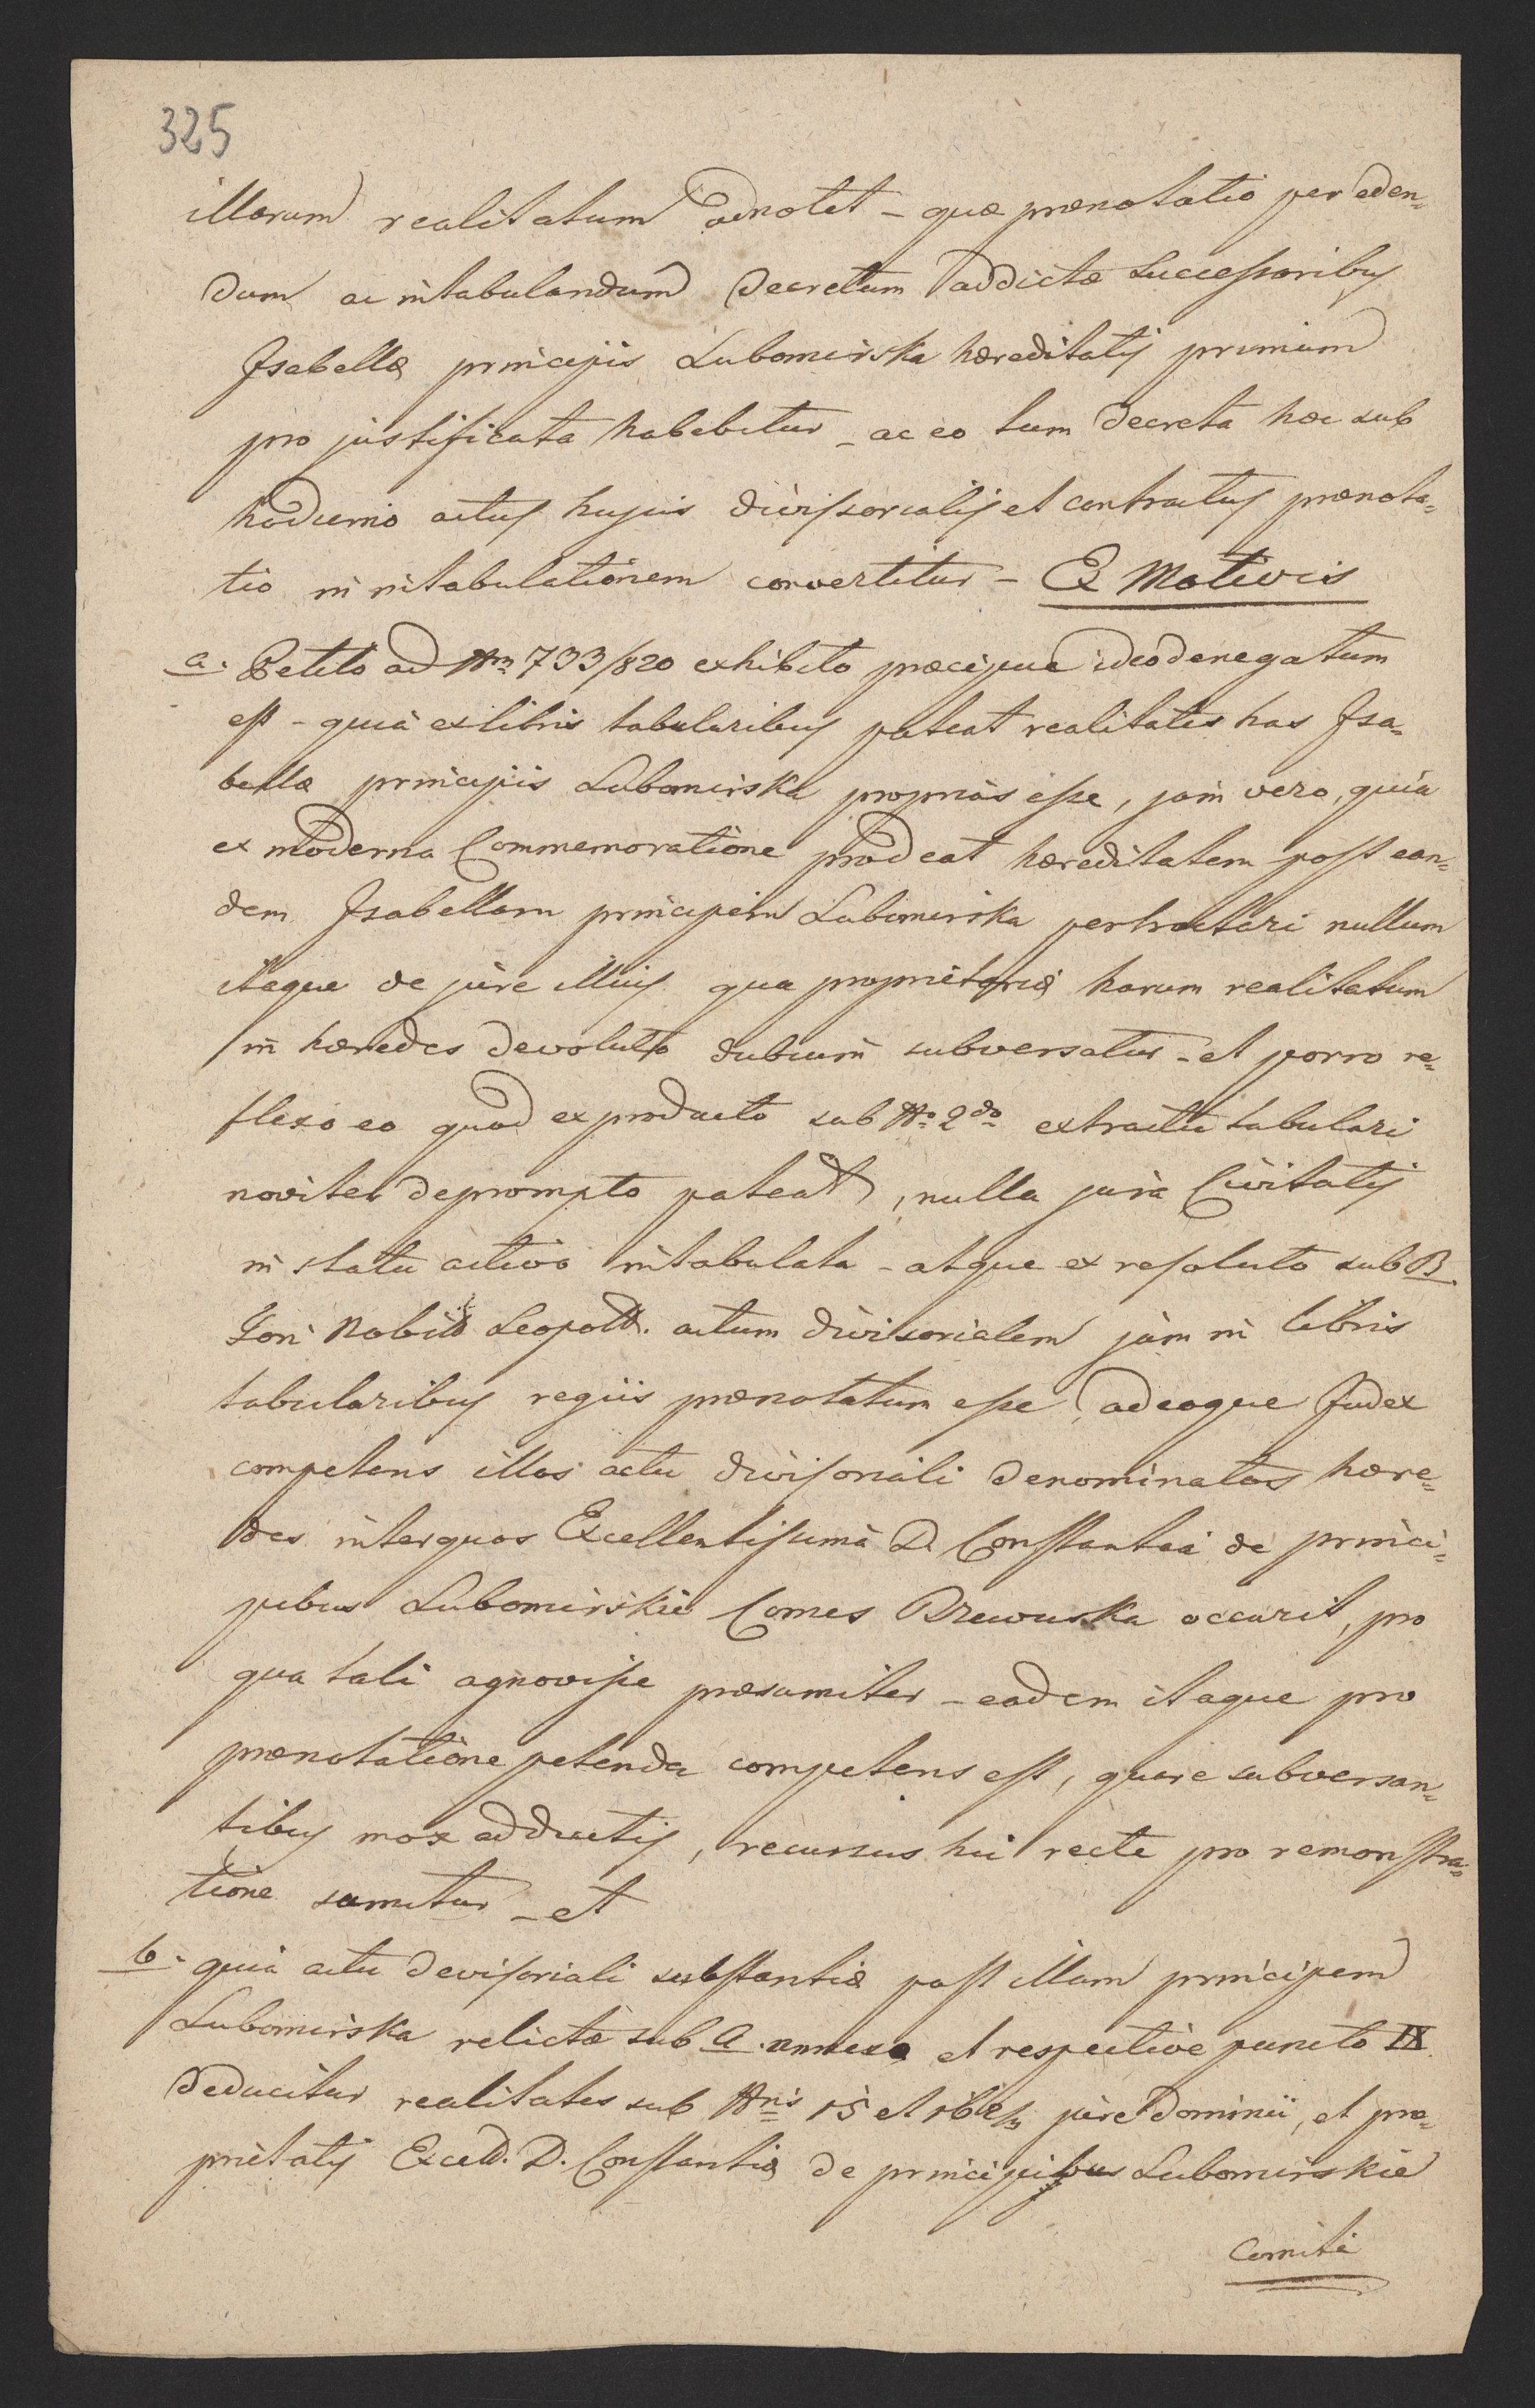 325
illarum realitatum adnotet - quæ prænotatio per eden=
dum ac intabulandum Decretum addictæ Successoribus
Isabellæ principis Lubomirska hæreditatis primum
pro justificata habebitur - ac eo tum decreta hæc sub
hodierno actus hujus divisorialis et contractus prænota=
tio in intabulationem convertitur - Ex Motivis
a. Petito ad Nrm 733/820 exhibito præcipue ideo denegatum
est - quia ex libris tabularibus pateat realitates has Isa=
bellæ principis Lubomirska proprias esse, jam vero, quia
ex moderna Commemoratione prodeat hæreditatem post ean=
dem Isabellam principem Lubomirska pertractari nullum
itaque de jure illius qua proprietariæ harum realitatum
in hæredes devoluto dubium subversatur - et porro re=
flexo eo quod ex producto sub Nro 2do extractu tabulari
noviter deprompto pateat, nulla jura Civitatis
in statu activo intabulata - atque ex resoluto sub B.
Fori Nobil Leopold. actum divisorialem jam in libris
tabularibus regiis prænotatum esse, adeoque Judex
competens illos actu divisoriali denominatos hære=
des interquos Excellentissima D. Constantia de princi=
pibus Lubomirskie Comes Rzewuska occurit, pro
qua tali agnovisse præsumitur - eadem itaque pro
prænotatione petenda competens est, quare subversan=
tibus mox adductis, recursus hic recte pro remonstra=
tione sumitur - et
b. quia actu devisoriali substantiæ post illam principem
Lubomirska relictæ sub A. annexo et respective puncto IX
deducitur realitates sub Nris 15 et 162/4 jure Dominii, et pro=
prietatis Excell. D. Constantiæ de principibus Lubomirskie
Comiti